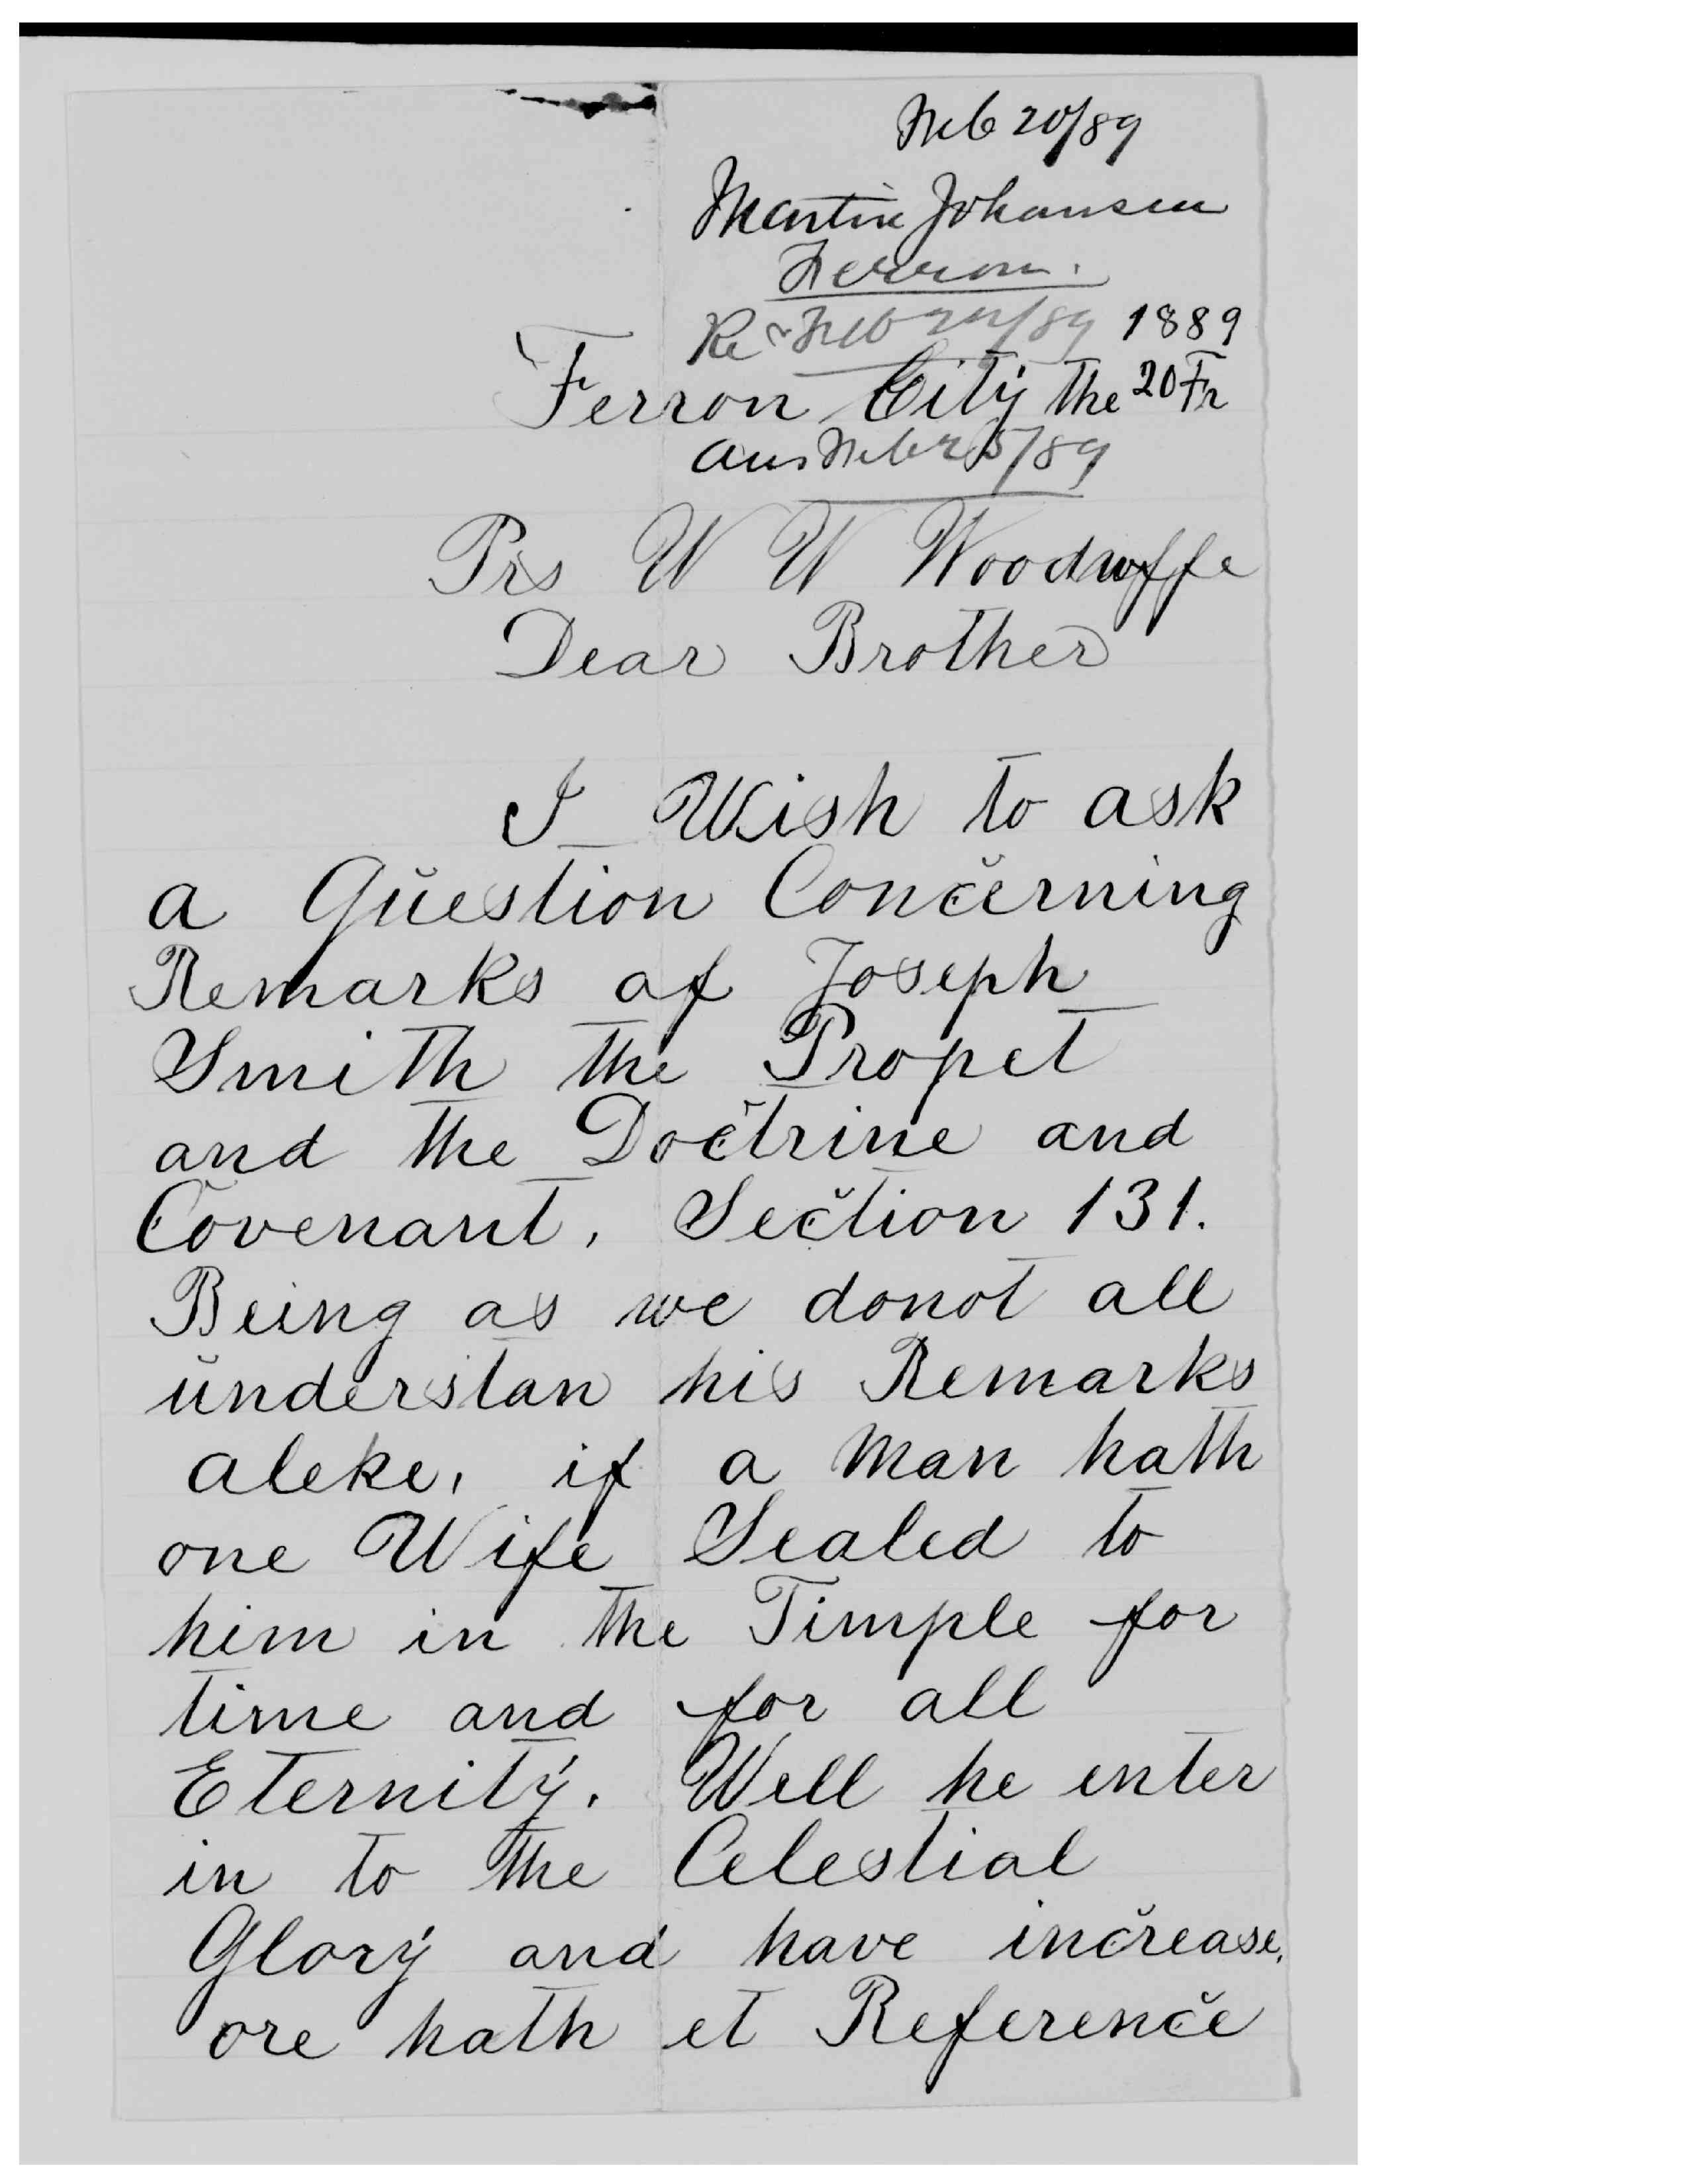 Feb 20/89
Martin Johansen
Ferron.
Rec Feb 24/89 1889
Ferron City the 20 Fr
ans Feb 25/89
Prs W W Woodruffe
Dear Brother
I Wish to ask
a Question Concerning
Remarks af Joseph
Smith the Propet
and the Doctrine and
Covenant, Section 131.
Being as we donot all
understan his Remarks
aleke, if a Man hath
one Wife Sealed to
him in the Timple for
time and for all
Eternity. Well he enter
in to the Celestial
Glory and have increase,
ore hath et Reference